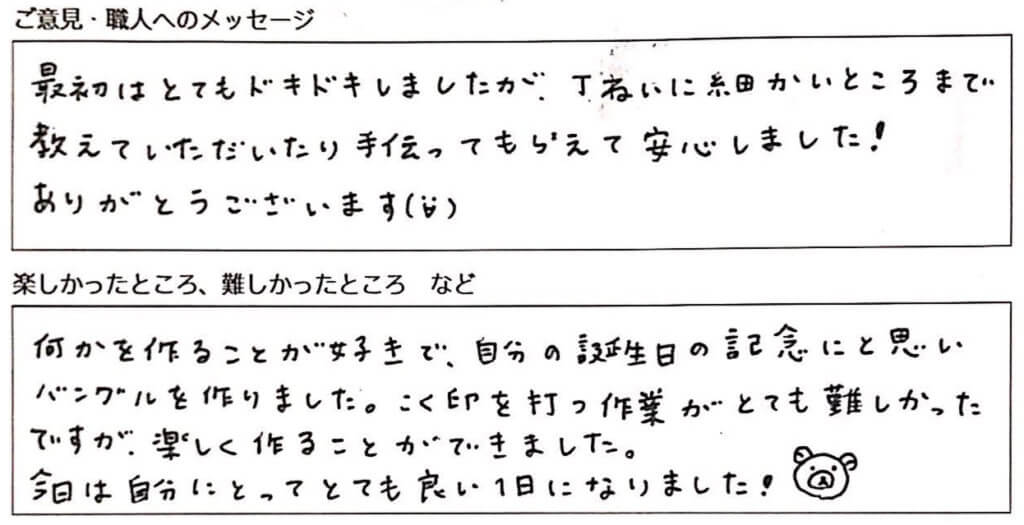 ご意見・職人へのメッセージ
最初はとてもドキドキしましたが、丁ねいに細かいところまで
教えていただいたり手伝ってもらえて安心しました！
ありがとうございます(ü)
楽しかったところ、難しかったところ　など
何かを作ることが好きで、自分の誕生日の記念にと思い
バングルを作りました。こく印を打つ作業がとても難しかった
ですが、楽しく作ることができました。
今日は自分にとってとても良い1日になりました！